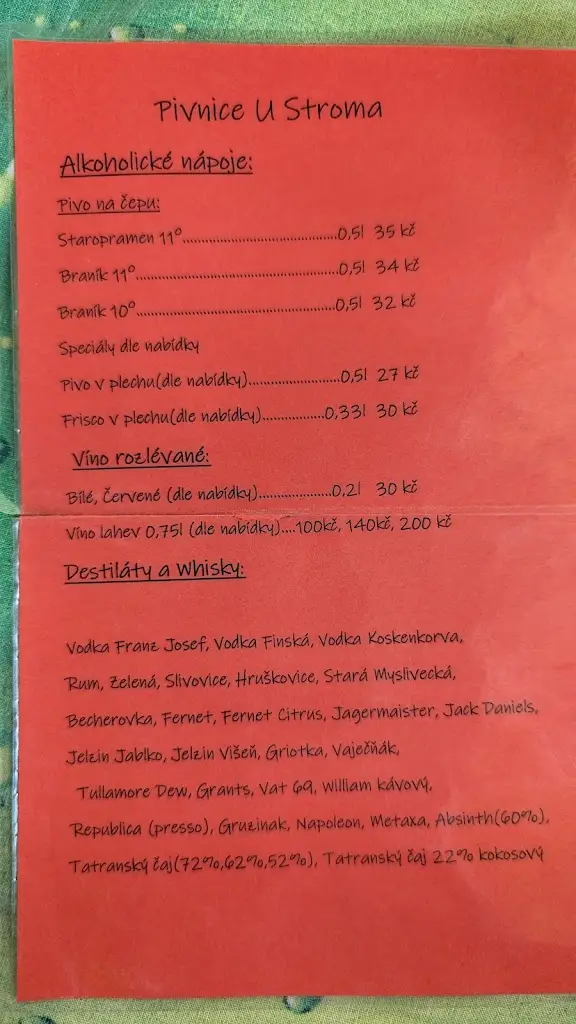 Pivnice U Stroma
Alkoholické nápoje:
Pivo na čepu:
Staropramen 11°......................................0,5l 35 kč
Braník 11°..................................................0,5l 34 kč
Braník 10°.................................................0,5l 32 kč
Speciály dle nabídky
Pivo v plechu(dle nabídky).......................0,5l 27 kč
Frisco v plechu(dle nabídky)................0,33l 30 kč
Víno rozlévané:
Bílé, Červené (dle nabídky)..................0,2l 30 kč
Víno lahev 0,75l (dle nabídky)....100kč, 140kč, 200 kč
Destiláty a Whisky:
Vodka Franz Josef, Vodka Finská, Vodka Koskenkorva,
Rum, Zelená, Slivovice, Hruškovice, Stará Myslivecká,
Becherovka, Fernet, Fernet Citrus, Jagermaister, Jack Daniels,
Jelzin Jablko, Jelzin Višeň, Griotka, Vaječňák,
Tullamore Dew, Grants, Vat 69, William kávový,
Republica (presso), Gruzinak, Napoleon, Metaxa, Absinth(60%),
Tatranský čaj(72%,62%,52%), Tatranský čaj 22% kokosový